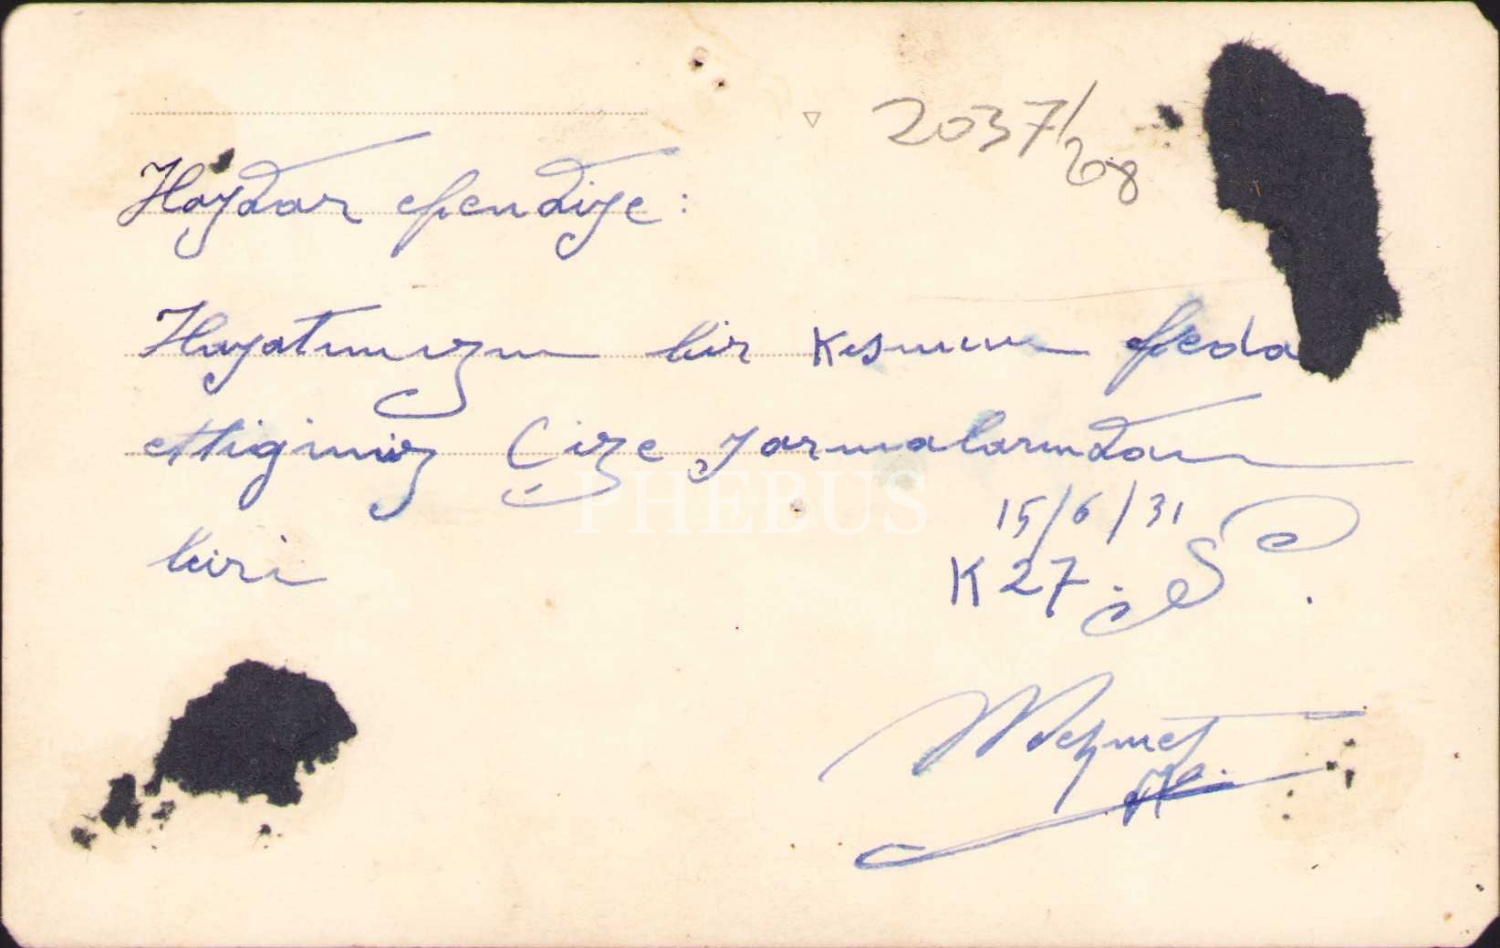 2037/208
Haydar efendiye:
Hayatımızın bir kısmını feda
ettiğimiz Cize yarmalarından
biri
PHEBUS
15/6/31
K 27. S.
Mehmet